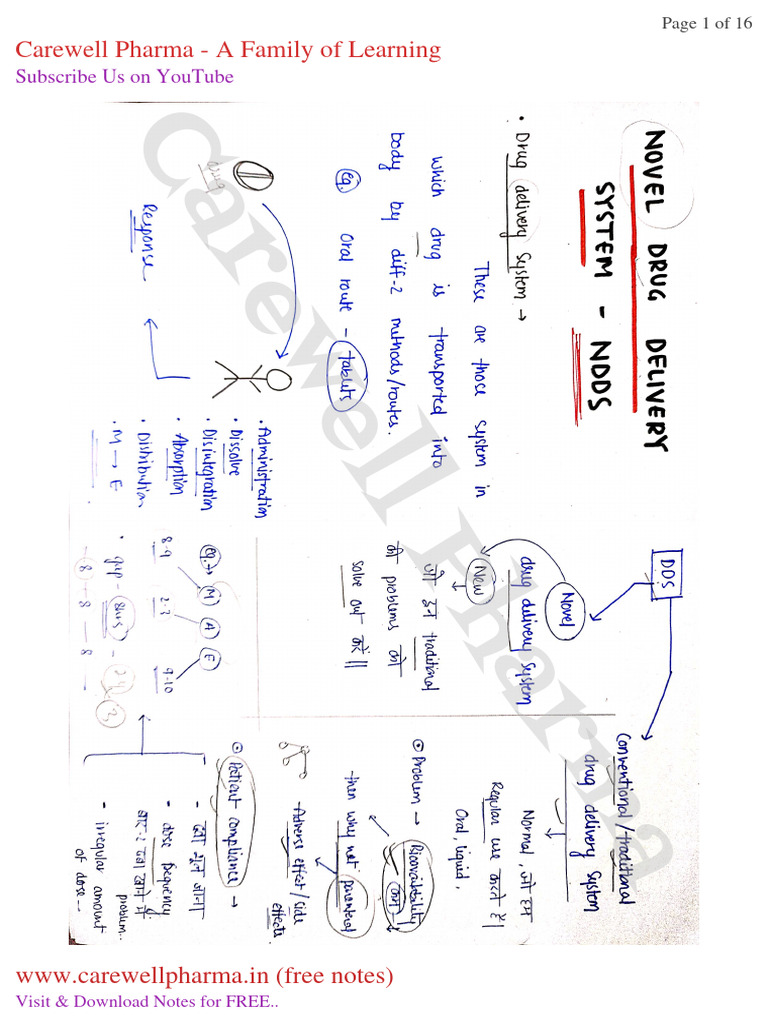 Page 1 of 16
Carewell Pharma - A Family of Learning
Subscribe Us on YouTube
Carewell Pharma
NOVEL DRUG DELIVERY
SYSTEM - NDDS
• Drug delivery system →
These are those system in
which drug is transported into
body by diff-2 methods/routes.
eg. Oral route - tablets
drug
Response
• Administration
• Dissolve
• Disintegration
• Absorption
• Distribution
• M → E
DDS
Novel
drug delivery system
New
जो इन traditional
की problems को
solve out करें ||
eg. → M A E
8-9 2-3 9-10
• gap - 8hrs - 24
3
- 8 - 8 - 8 -
Conventional/traditional
drug delivery system
Normal, जो हम
Regular use करते हैं |
Oral, liquid,
⊙ Problem → Bioavailability
कम
then why not parentral
- Adverse effect/side
effects.
⊙ Patient compliance →
• दवा भूल जाना
• dose frequency
बार-2 दवा खाने में
problem..
• irregular amount
of dose--
www.carewellpharma.in (free notes)
Visit & Download Notes for FREE..